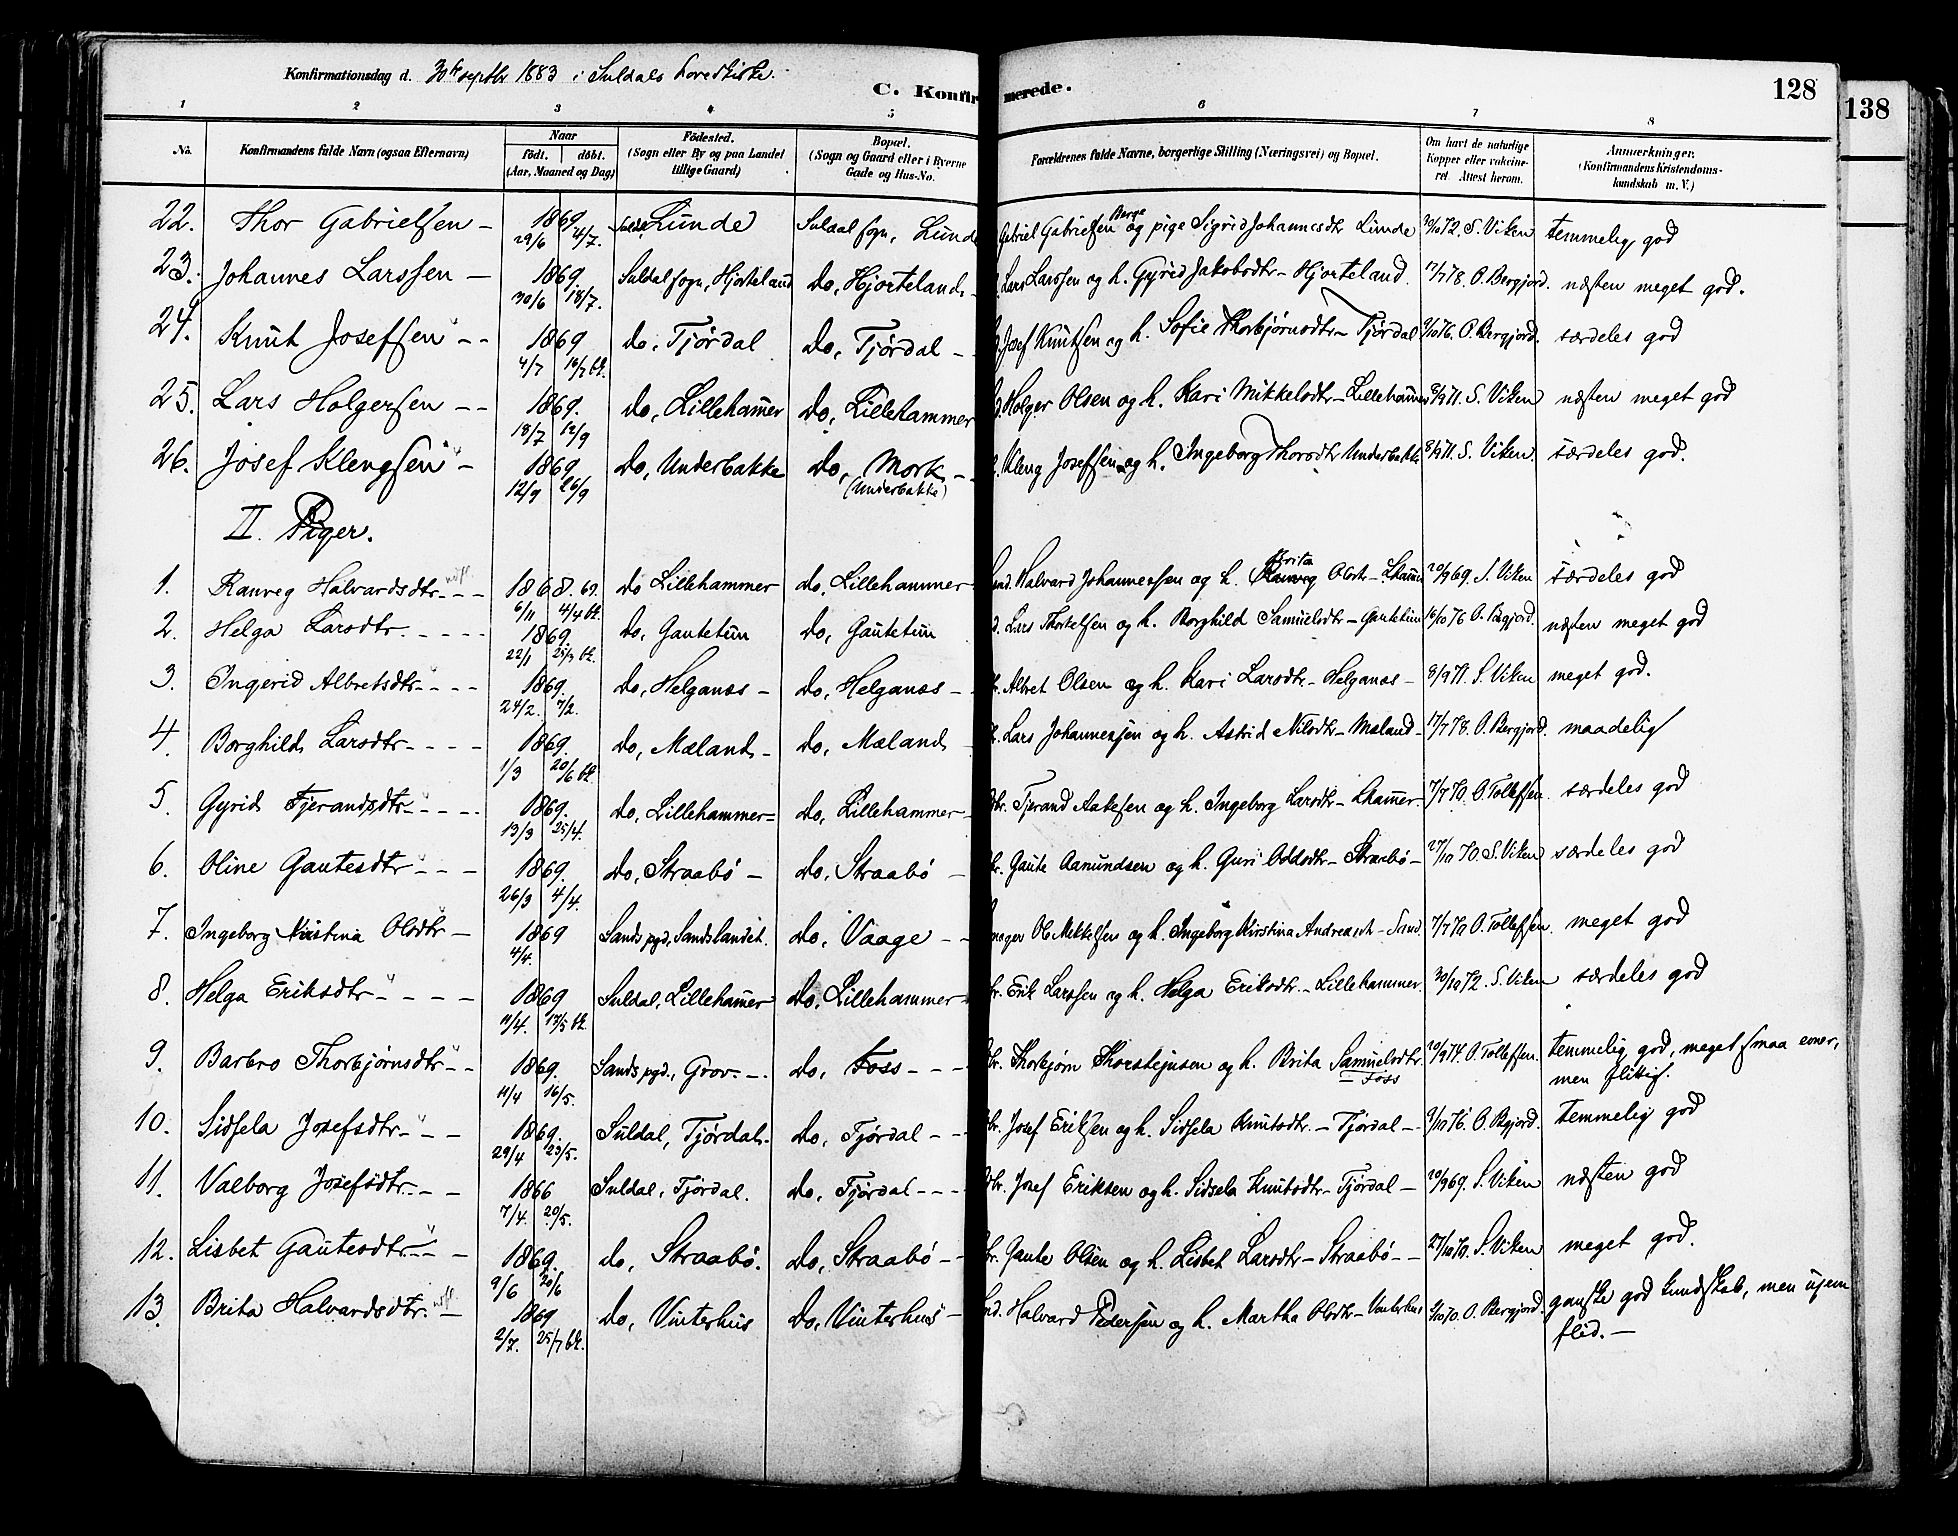 Konfirmationsdag d. 30te septbr 1883 i Suldals hovedkirke.
C. Konfirmerede. 128
138
1 2 3 4 5 6 7 8
No. Konfirmandens fulde Navn (ogsaa Efternavn) Naar födt. döbt. (Aar, Maaned og Dag) Födested. (Sogn eller By og paa Landet tillige Gaard) Bopæl. (Sogn og Gaard eller i Byerne Gade og Hus-No. Forældrenes fulde Navne, borgerlige Stilling (Næringsvei) og Bopæl. Om havt de naturlige Kopper eller vakcineret. Attest herom. Anmærkninger. (Konfirmandens Kristendomskundskab m. V.)
22. Thor Gabrielsen – 1869 29/6 4/7. Suldal Lunde Suldal sogn, Lunde Gabriel Gabrielsen Berge og pige Sigrid Johannesdtr Lunde 30/10 72. S. Viken temmelig god
23. Johannes Larssen – 1869. 30/6 18/7. Suldal sogn, Hjorteland do, Hjorteland. Lars Larssen og h. Gyrid Jakobsdtr – Hjorteland. 17/7 78. O. Bergjord. næsten meget god.
24. Knut Josefsen – – 1869 4/7 18/7 bk. do, Tjördal do, Tjördal – Josef Knutsen og h. Sofie Thorbjörnsdtr – Tjördal 9/10 76. O. Bergjord. særdeles god
25. Lars Holgersen – – 1869. 18/7 12/9 do, Lillehamer do, Lillehammer Holger Olsen og h. Kari Mikkelsdtr – Lillehamer 8/9 71. S. Viken næsten meget god
26. Josef Klengsen – 1869 12/9 26/9 do, Underbakke do, Mork – (Underbakke) Kleng Josefsen og h. Ingeborg Thorsdtr Underbakke 8/9 71. S. Viken. særdeles god.
II. Piger.
1. Ranveg Halvardsdtr. – – 1868. 69. 6/11 4/4 bk. do Lillehammer do, Lillehammer Halvard Johannessen og h. Brita Olsdtr – Lhamer 20/9 69. S. Viken særdeles god
2. Helga Larsdtr. – – – – 1869. 22/1 25/3 bk. do, Gautetun do, Gautetun Lars Thorkelsen og h. Borghild Samuelsdtr – Gautetun 16/10 76 O. Bergjord. næsten meget god
3. Ingerid Albretsdtr – – – 1869. 24/2. 7/2. do, Helganæs – do, Helganæs – Albret Olsen og h. Kari Larsdtr – Helganæs – 8/9 71. S. Viken meget god.
4. Borghild Larsdtr – – – – 1869. 1/3 20/6 bk. do, Mæland – do, Mæland Lars Johannessen og h. Astrid Nilsdtr – Mæland – 17/7 78. O. Bergjord. maadelig
5. Gyrid Tjerandsdtr – – – – 1869. 13/3 25/4. do, Lillehammer – do, Lillehammer – Tjerand Aakesen og h. Ingeborg Larsdtr – Lhamer. 7/7 70. O. Tollefsen særdeles god
6. Oline Gautesdtr – – – 1869. 26/3 4/4. do, Straabö – do, Straabö – Gaute Aamundsen og h. Guri Oddsdtr – Straabö – 27/10 70. S. Viken særdeles god
7. Ingeborg Kirstina Olsdtr – 1869 4/4. Sands pgd, Sandslandet. do, Vaage – – Ole Mikkelsen og h. Ingeborg Kirstina Andreasdt – Sand. 7/7 70 O. Tollefsen. meget god
8. Helga Eriksdtr – – – – 1869 11/4. 17/5 bk. Suldal, Lillehamer do, Lillehammer Erik Larssen og h. Helga Eriksdtr. – Lillehammer. 30/10 72. S. Viken særdeles god
9. Barbro Thorbjörnsdtr – – 1869. 11/4 16/5. Sands pgd., Grov. – do, Foss – – – Thorbjörn Thorstejnsen og h. Brita Samuelsdtr. – Foss 20/9 74. O. Tollefsen. temmelig god, meget smaa evner, men flittig.
10. Sidsela Josefsdtr – – 1869. 29/4 23/5. Suldal, Tjördal. do, Tjördal – – Josef Eriksen og h. Sidsela Knutsdtr. – Tjördal – 9/10 76. O. Bgjord. temmelig god
11. Valborg Josefsdtr. – – 1866 7/4. 20/5. Suldal, Tjördal. do, Tjördal – – – Josef Eriksen og h. Sidsela Knutsdtr – Tjördal – 20/9 69. S. Viken næsten god
12. Lisbet Gautesdtr – – 1869. 9/6 20/6 do, Straabö. do, Straabö – – Gaute Olsen og h. Lisbet Larsdtr – Straabö – – 27/10 70. S. Viken meget god.
13. Brita Halvardsdtr. – 1869 2/7. 25/7 bk. do, Vinterhus do, Vinterhus – Halvard Pedersen og h. Martha Olsdtr – Vinterhus O. Bergjord. ganske god kundskab, men ujevn flid. –